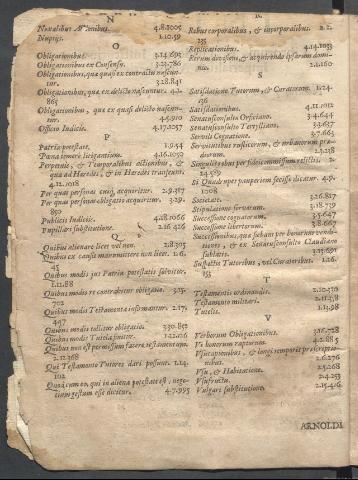 N
Noxalibus Actionibus. 4.8.1005
Nuptijs. 1.10.59
O
Obligationibus. 3.14.693
Obligationibus ex Consensu. 3.23.786
Obligationibus, quæ quasi ex contractu nascuntur. 3.28.841
Obligationibus, quæ ex delicto nascuntur. 4.1.
865
Obligationibus, quæ ex quasi delicto nascuntur. 4.5.910
Officio Iudicis. 4.17.1057
P
Patria potestate. 1.9.54
Pœna temere litigantium. 4.16.1050
Perpetuis, & Temporalibus actionibus, &
quæ ad Heredes, & in Heredes transeunt.
4.12.1018
Per quas personas cuiq; acquiritur. 2.9.387
Per quas personas obligatio acquiritur. 3.29.
850
Publicis Iudicijs. 4.18.1066
Pupillari substitutione. 2.16.426
Q
Quibus alienare licet vel non. 2.8.305
Quibus ex causis manumittere non licet. 1.6.
45
Quibus modis jus Patria potestatis solvitur.
1.12.88
Quibus modis re contrahitur obligatio. 3.15.
702
Quibus modis Testamenta infirmantur. 2.17.
437
Quibus modis tollitur obligatio. 3.30.852
Quibus modis Tutela finitur. 1.22.126
Quibus non est permissum facere testamentum.
2.12.368
Qui Testamento Tutores dari possunt. 1.14.
102
Quod cum eo, qui in aliena potestate est, negotium gestum esse dicitur. 4.7.995
R
Rebus corporalibus, & incorporalibus. 2.2.
Replicationibus. 4.14.1033
Rerum divisione, & acquirendo ipsarum dominio. 2.1.160
S
Satisdatione Tutorum, & Curatorum. 1.24.
136
Satisdationibus. 4.11.1012
Senatusconsulto Orficiano. 3.4.644
Senatusconsulto Tertylliano. 3.3.637
Servili Cognatione. 3.7.663
Servitutibus rusticorum, & urbanorum prædiorum. 2.3.238
Singulis rebus per fideicommissum relictis. 2.
24.589
Si Quadrupes pauperiem fecisse dicatur. 4.9.
1008
Societate. 3.26.817
Stipulatione servorum. 3.18.739
Successione cognatorum. 3.5.647
Successione libertorum. 3.8.667
Successionibus, quæ fiebant per bonorum venditiones, & ex Senatusconsulto Claudiano
sublatis. 3.13.691
Suspectis Tutoribus, vel Curatoribus. 1.26.
T
Testamentis ordinandis. 2.10.
Testamento militari. 2.11.
Tutelis. 1.13.98
V
Verborum Obligationibus. 3.16.728
Vi bonorum raptorum. 4.2.885
Usucapionibus, & longi temporis præscriptionibus. 2.6.276
Usu, & Habitatione. 2.5.268
Usufructu. 2.4.253
Vulgari substitutione. 2.15.416
ARNOLDI